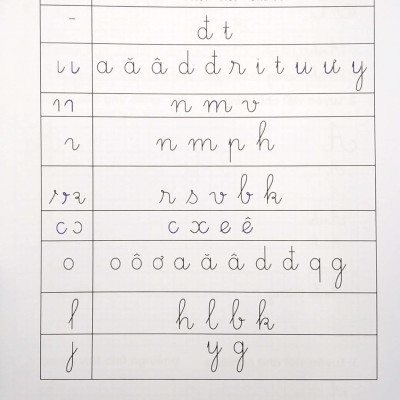 - đ t
ɩ ɩ a ă â d đ r i t u ư y
n m v
n m p h
r s v b k
c ɔ c x e ê
o o ô ơ a ă â d đ q g
l h l b k
j y g